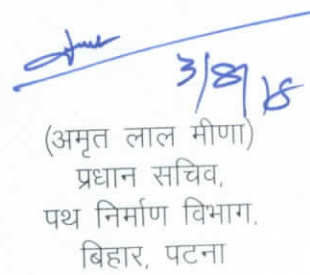 3/8/18
(अमृत लाल मीणा)
प्रधान सचिव,
पथ निर्माण विभाग.
बिहार, पटना